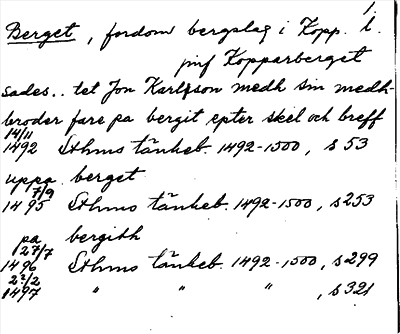 1.
Berget, fordom bergslag i Kopp. l.
jmf Kopparberget
sades.. tet Jon Karlsson medh sin medh-
broder fare pa bergit epter skel och breff
14/11
1492 Sthms tänkeb. 1492-1500, s 53
uppa berget
7/9
1495 Sthms tänkeb. 1492-1500, s 253
pa bergith
27/7
1496 Sthms tänkeb. 1492-1500, s 299
22/2
1497 " " " , s 321